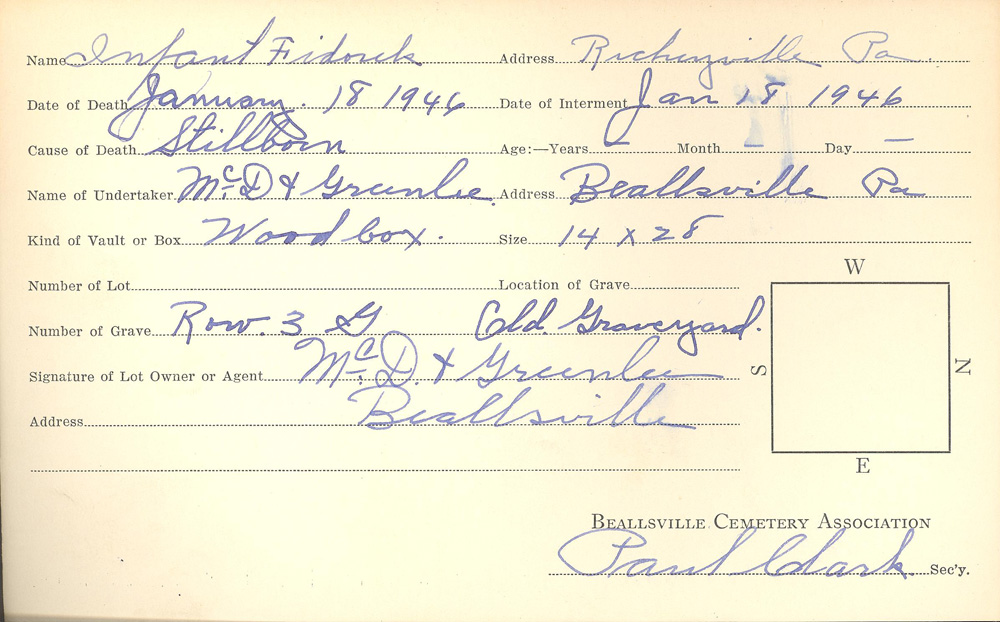 Name Infant Fidorek Address Richeyville Pa.
Date of Death January. 18 1946 Date of Interment Jan 18 1946
Cause of Death Stillborn Age:—Years – Month – Day –
Name of Undertaker McD & Greenlee Address Beallsville Pa
Kind of Vault or Box Wood box. Size 14 x 28
Number of Lot Location of Grave
Number of Grave Row. 3 G Old Graveyard.
Signature of Lot Owner or Agent McD. & Greenlee
Address Beallsville
W
S
N
E
BEALLSVILLE CEMETERY ASSOCIATION
Paul Clark Sec'y.